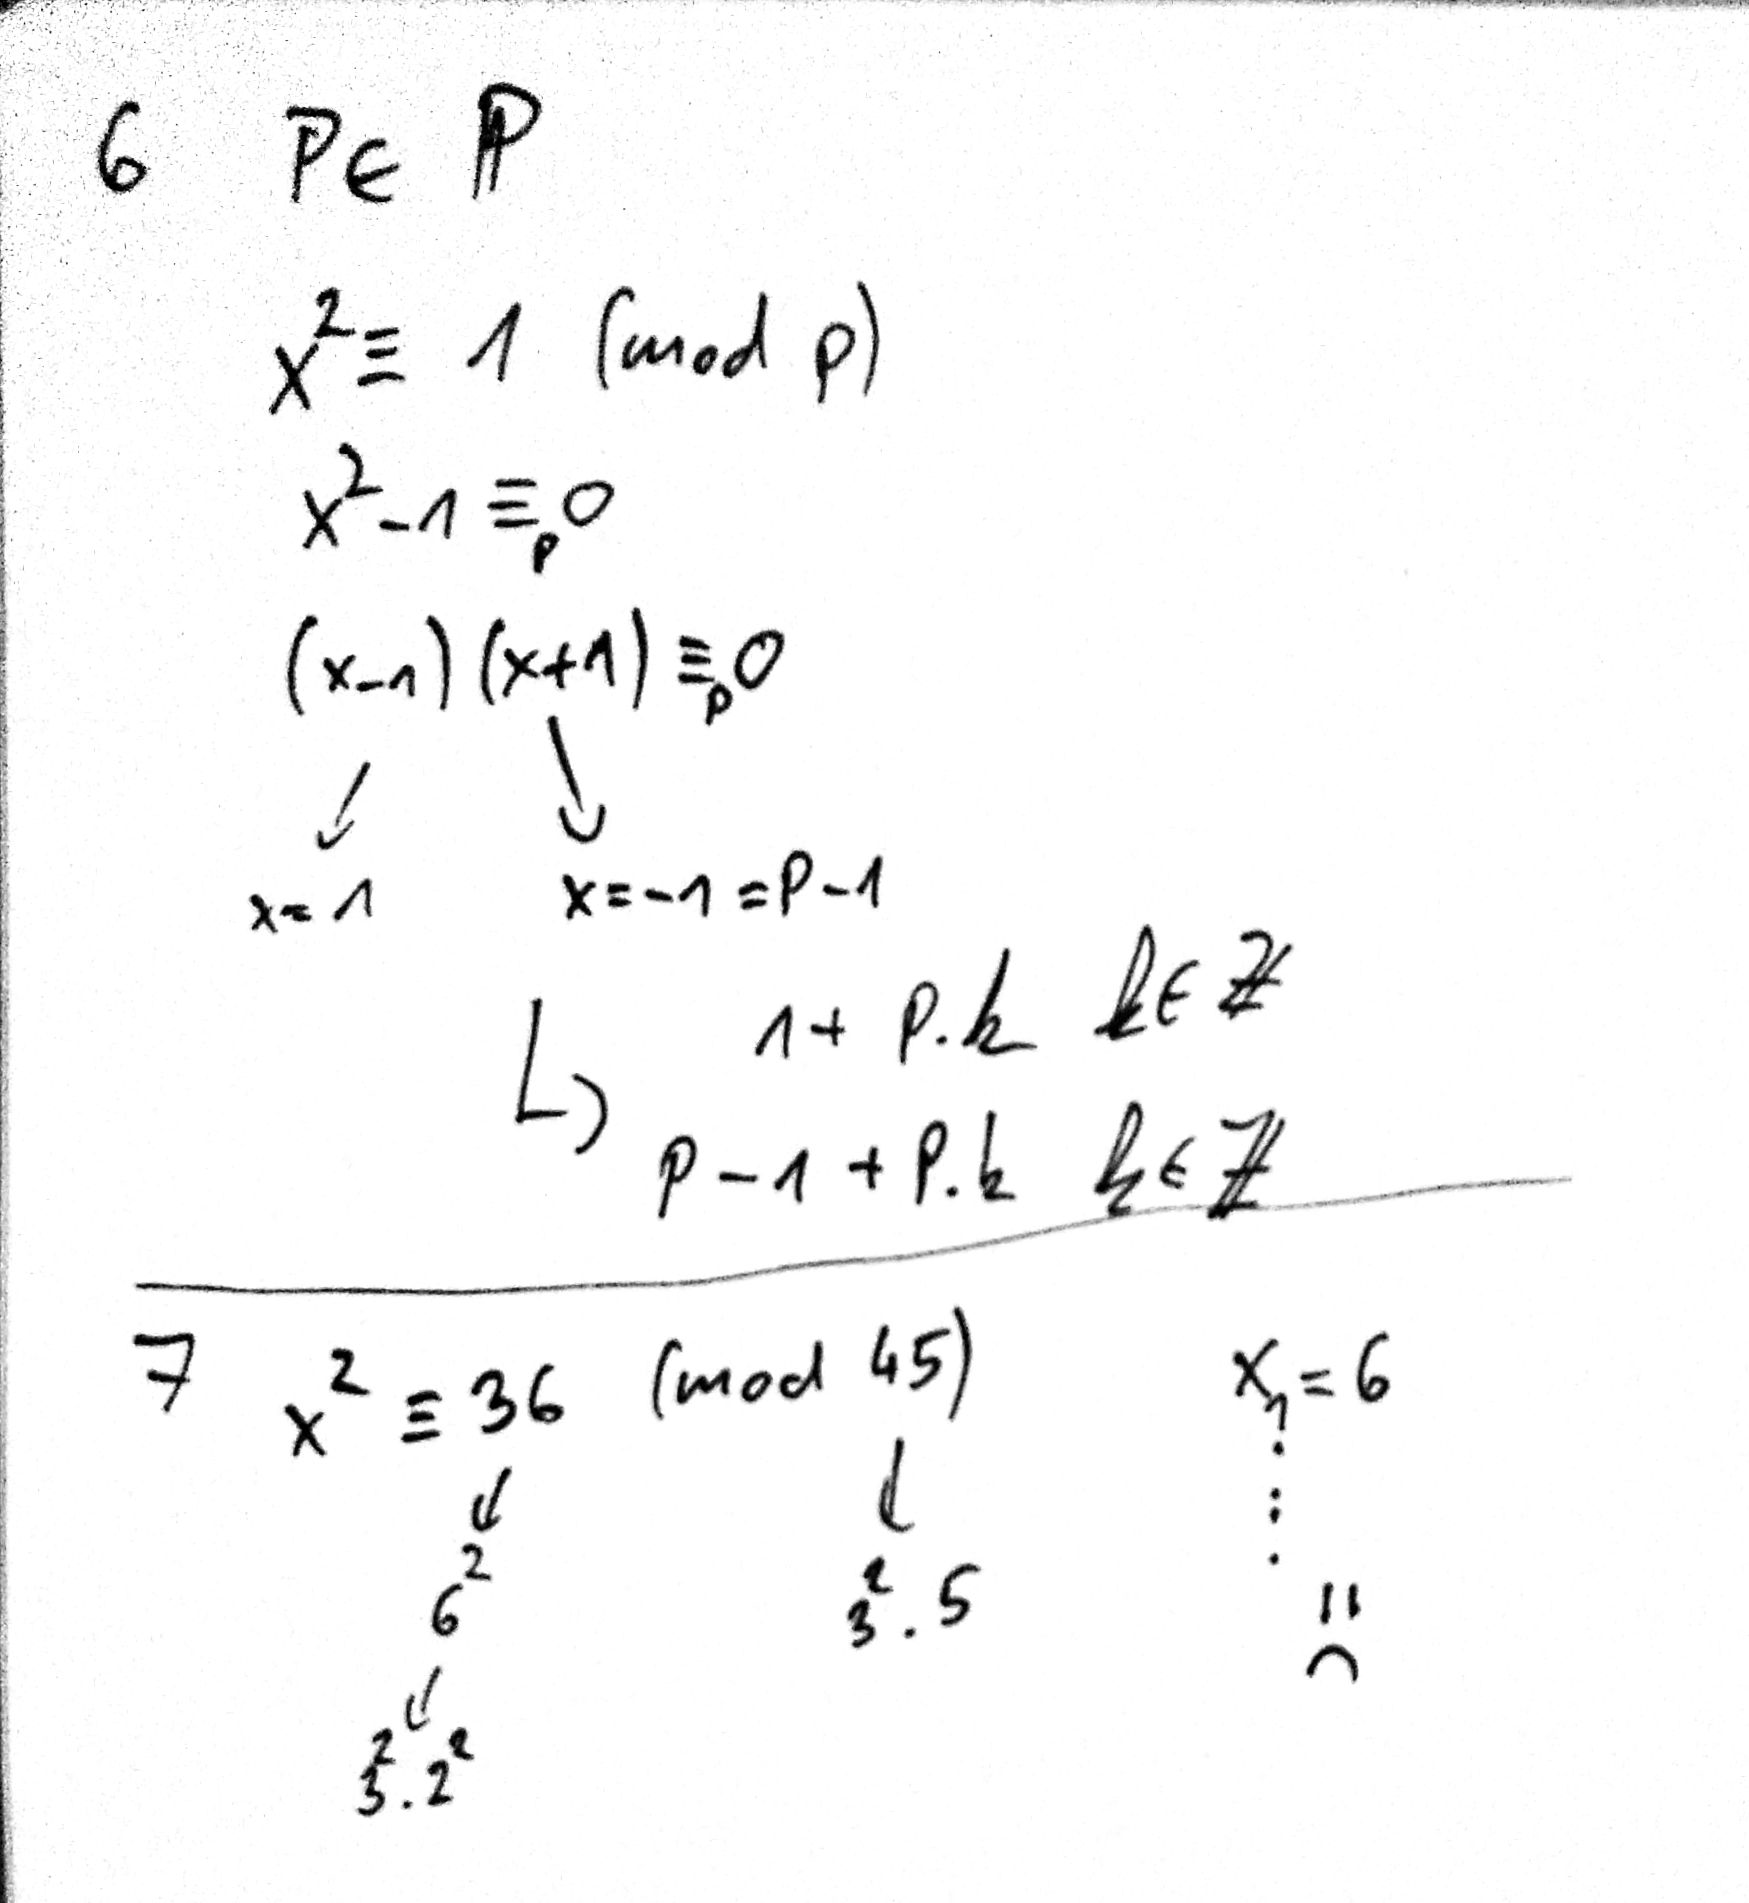 6 P∈ ℙ
x² ≡ 1 (mod p)
x²-1 ≡ₚ 0
(x-1) (x+1) ≡ₚ 0
↙ ↓
x=1 x=-1=P-1
↳ 1+ P.k k∈ℤ
p-1+P.k k∈ℤ
7 x² ≡ 36 (mod 45) x₁=6
↓ ↓ ⋮
6² 3².5
↓
3².2²